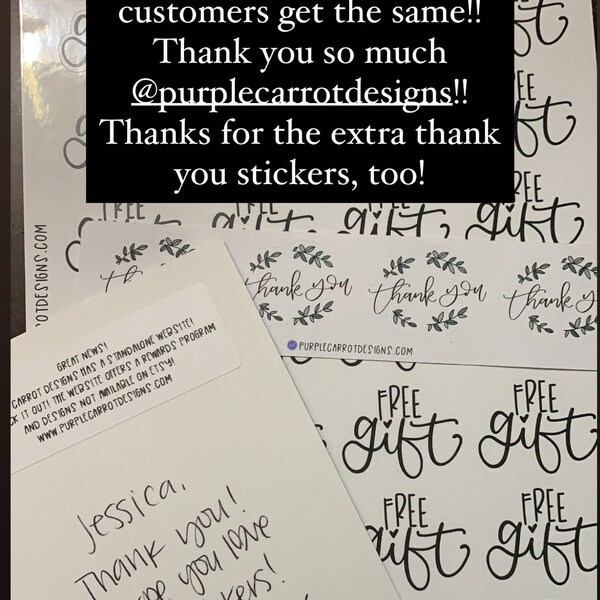 customers get the same!!
Thank you so much
@purplecarrotdesigns!!
Thanks for the extra thank
you stickers, too!
gift
FREE
gift
FREE
gift
FREE
gift
FREE
gift
FREE
gift
thank you
thank you
thank you
PURPLECARROTDESIGNS.COM
GREAT NEWS!
CARROT DESIGNS HAS A STANDALONE WEBSITE!
IT OUT! THE WEBSITE OFFERS A REWARDS PROGRAM
AND DESIGNS NOT AVAILABLE ON ETSY!
WWW.PURPLECARROTDESIGNS.COM
FREE
gift
FREE
gift
FREE
gift
FREE
gift
Jessica,
Thank you!
you love